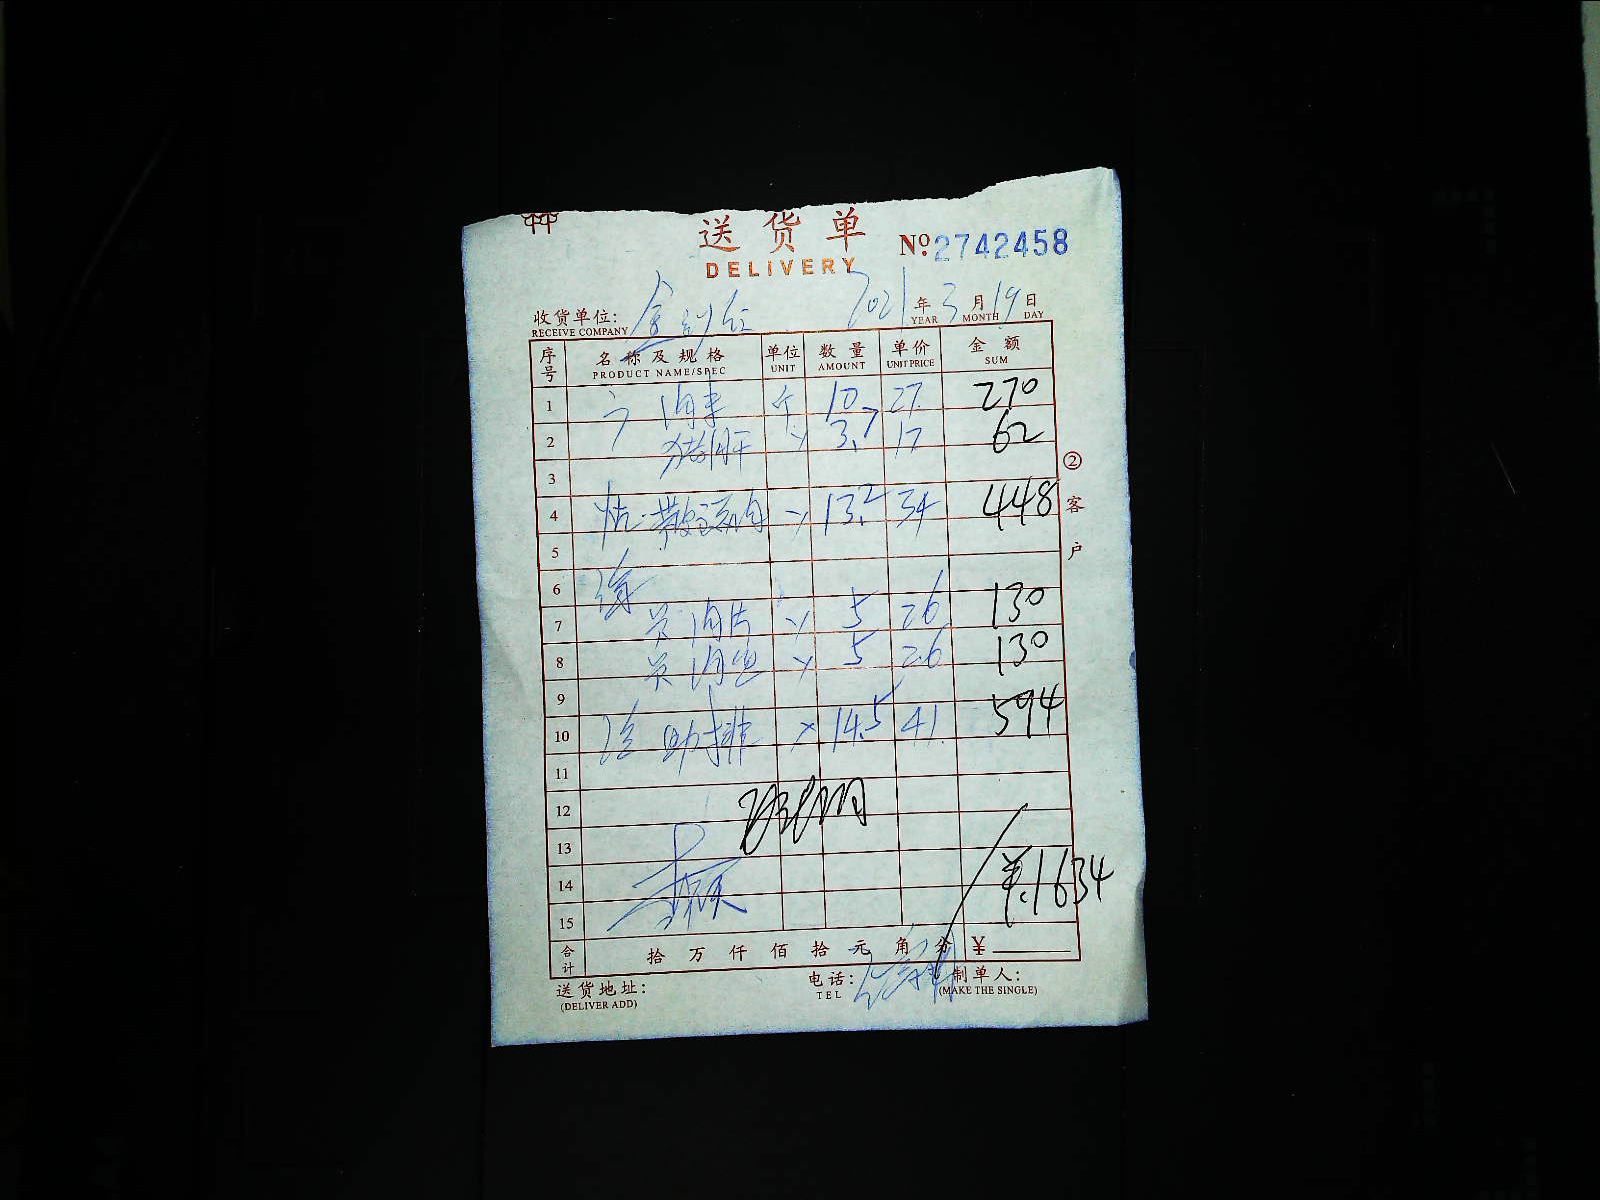 送货单
DELIVERY
No:2742458
收货单位:
RECEIVE COMPANY
2021年3月19日
YEAR MONTH DAY
序号 名称及规格 单位 数量 单价 金额
PRODUCT NAME/SPEC UNIT AMOUNT UNIT PRICE SUM
1 斤 10 27 270
2 猪肝 3.7 17 62
3
4 13.2 34 448
5
6
7 肉片 5 26 130
8 5 26 130
9
10 肋排 14.5 41 594
11
12
13
14 ¥1634
15
合计 拾万仟佰拾元角分 ¥
送货地址:
(DELIVER ADD)
电话:
TEL
制单人:
(MAKE THE SINGLE)
②客户